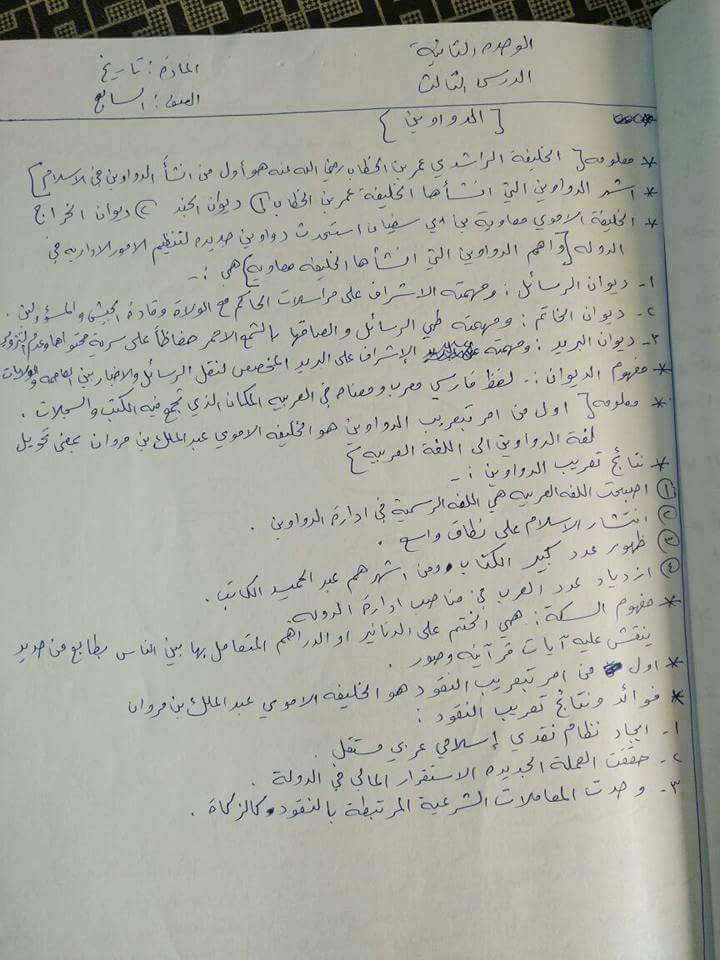 الوحده الثانية
المادة : تاريخ
الدرس الثالث
الصف : السابع
{ الدواوين }
* معلومه { الخليفة الراشدي عمر بن الخطاب رضي الله عنه هو أول من انشأ الدواوين في الاسلام }
* اشهر الدواوين التي انشأها الخليفة عمر بن الخطاب ① ديوان الجند ② ديوان الخراج
* الخليفة الاموي معاوية بن ابي سفيان استحدث دواوين جديده لتنظيم الامور الادارية في
الدولة { واهم الدواوين التي انشأها الخليفه معاوية } هي :-
١- ديوان الرسائل : ومهمته الاشراف على مراسلات الحاكم مع الولاة وقادة الجيش والمسؤولين .
٢- ديوان الخاتم : ومهمته طي الرسائل والصاقها بالشمع الاحمر حفاظاً على سرية محتواها وعدم التزوير
٣- ديوان البريد : ومهمته الإشراف على البريد المخصص لنقل الرسائل والاخبار بين العاصمه والولايات
* مفهوم الديوان :- لفظ فارسي معرب ومعناه في العربيه المكان الذي تجمع فيه الكتب والسجلات .
* معلومه { اول من امر بتعريب الدواوين هو الخليفه الاموي عبد الملك بن مروان بمعنى تحويل
لغة الدواوين الى اللغة العربيه }
* نتائج تعريب الدواوين :-
① اصبحت اللغه العربيه هي اللغه الرسمية في ادارة الدواوين .
② انتشار الاسلام على نطاق واسع .
③ ظهور عدد كبير الكتاب ومن اشهرهم عبد الحميد الكاتب .
④ ازدياد عدد العرب في مناصب ادارة الدوله .
* مفهوم السكة : هي الختم على الدنانير او الدراهم المتعامل بها بين الناس بطابع من حديد
ينقش عليه آيات قرآنيه وصور .
* اول من امر بتعريب النقود هو الخليفه الاموي عبد الملك بن مروان
* فوائد ونتائج تعريب النقود :
١- ايجاد نظام نقدي إسلامي عربي مستقل .
٢- حققت العملة الجديده الاستقرار المالي في الدولة .
٣- وحدت المعاملات الشرعية المرتبطة بالنقود كالزكاة .